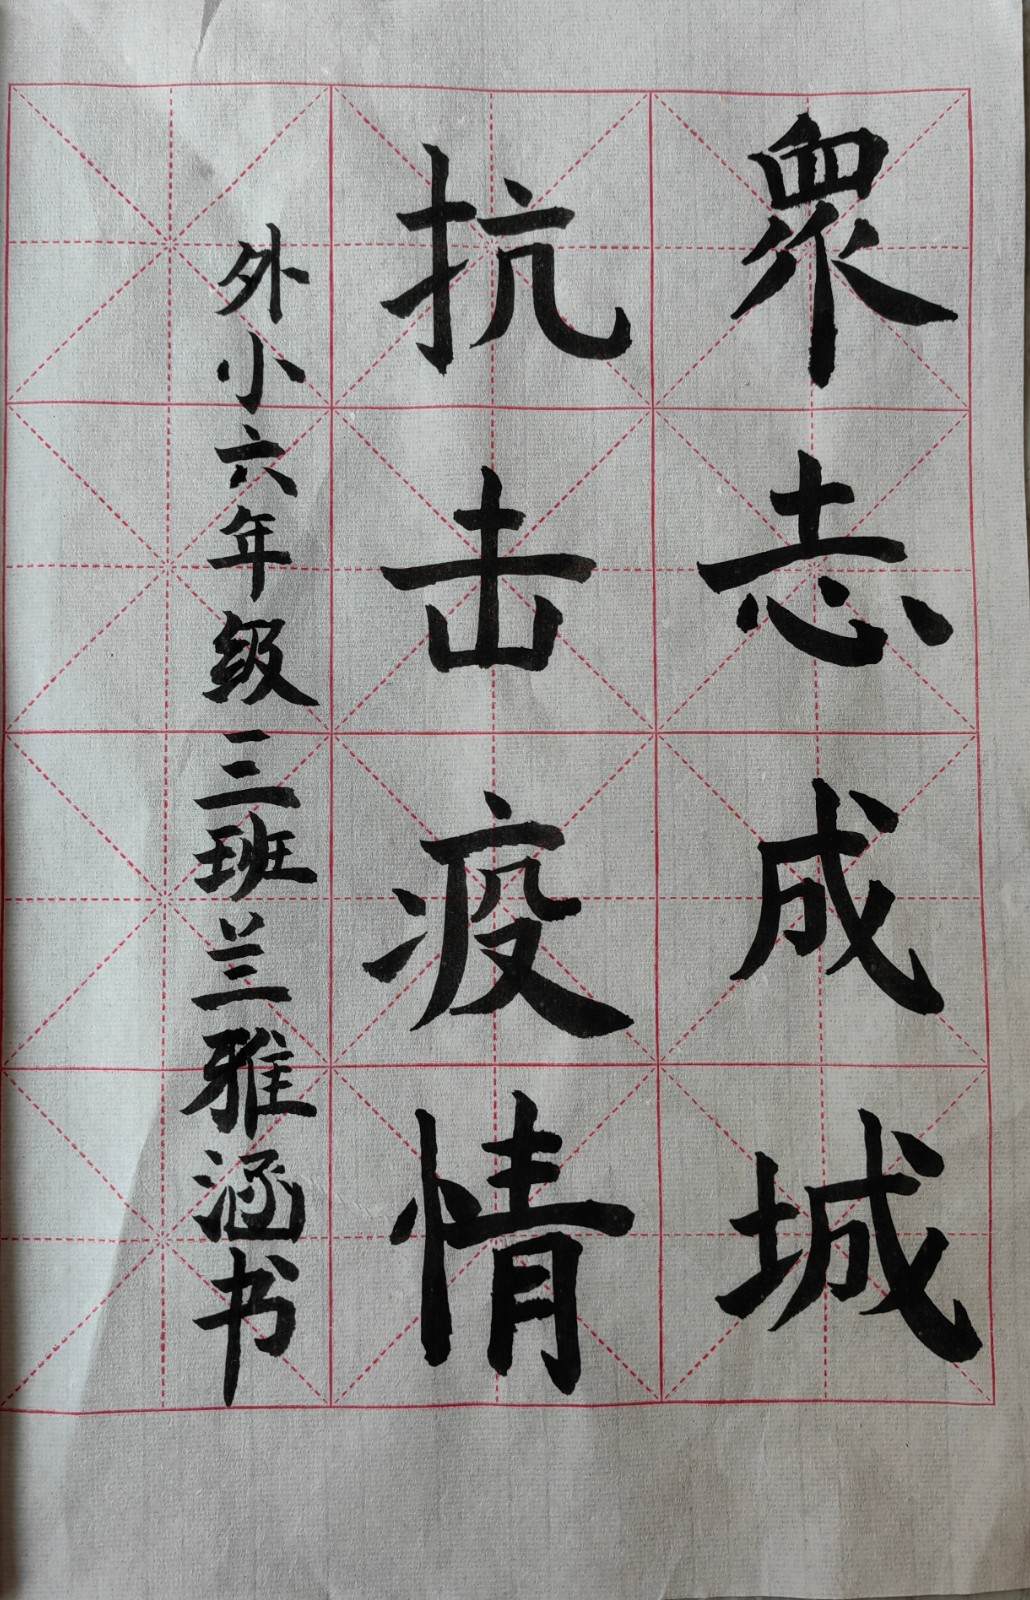 眾志成城
抗击疫情
外小六年级三班兰雅涵书